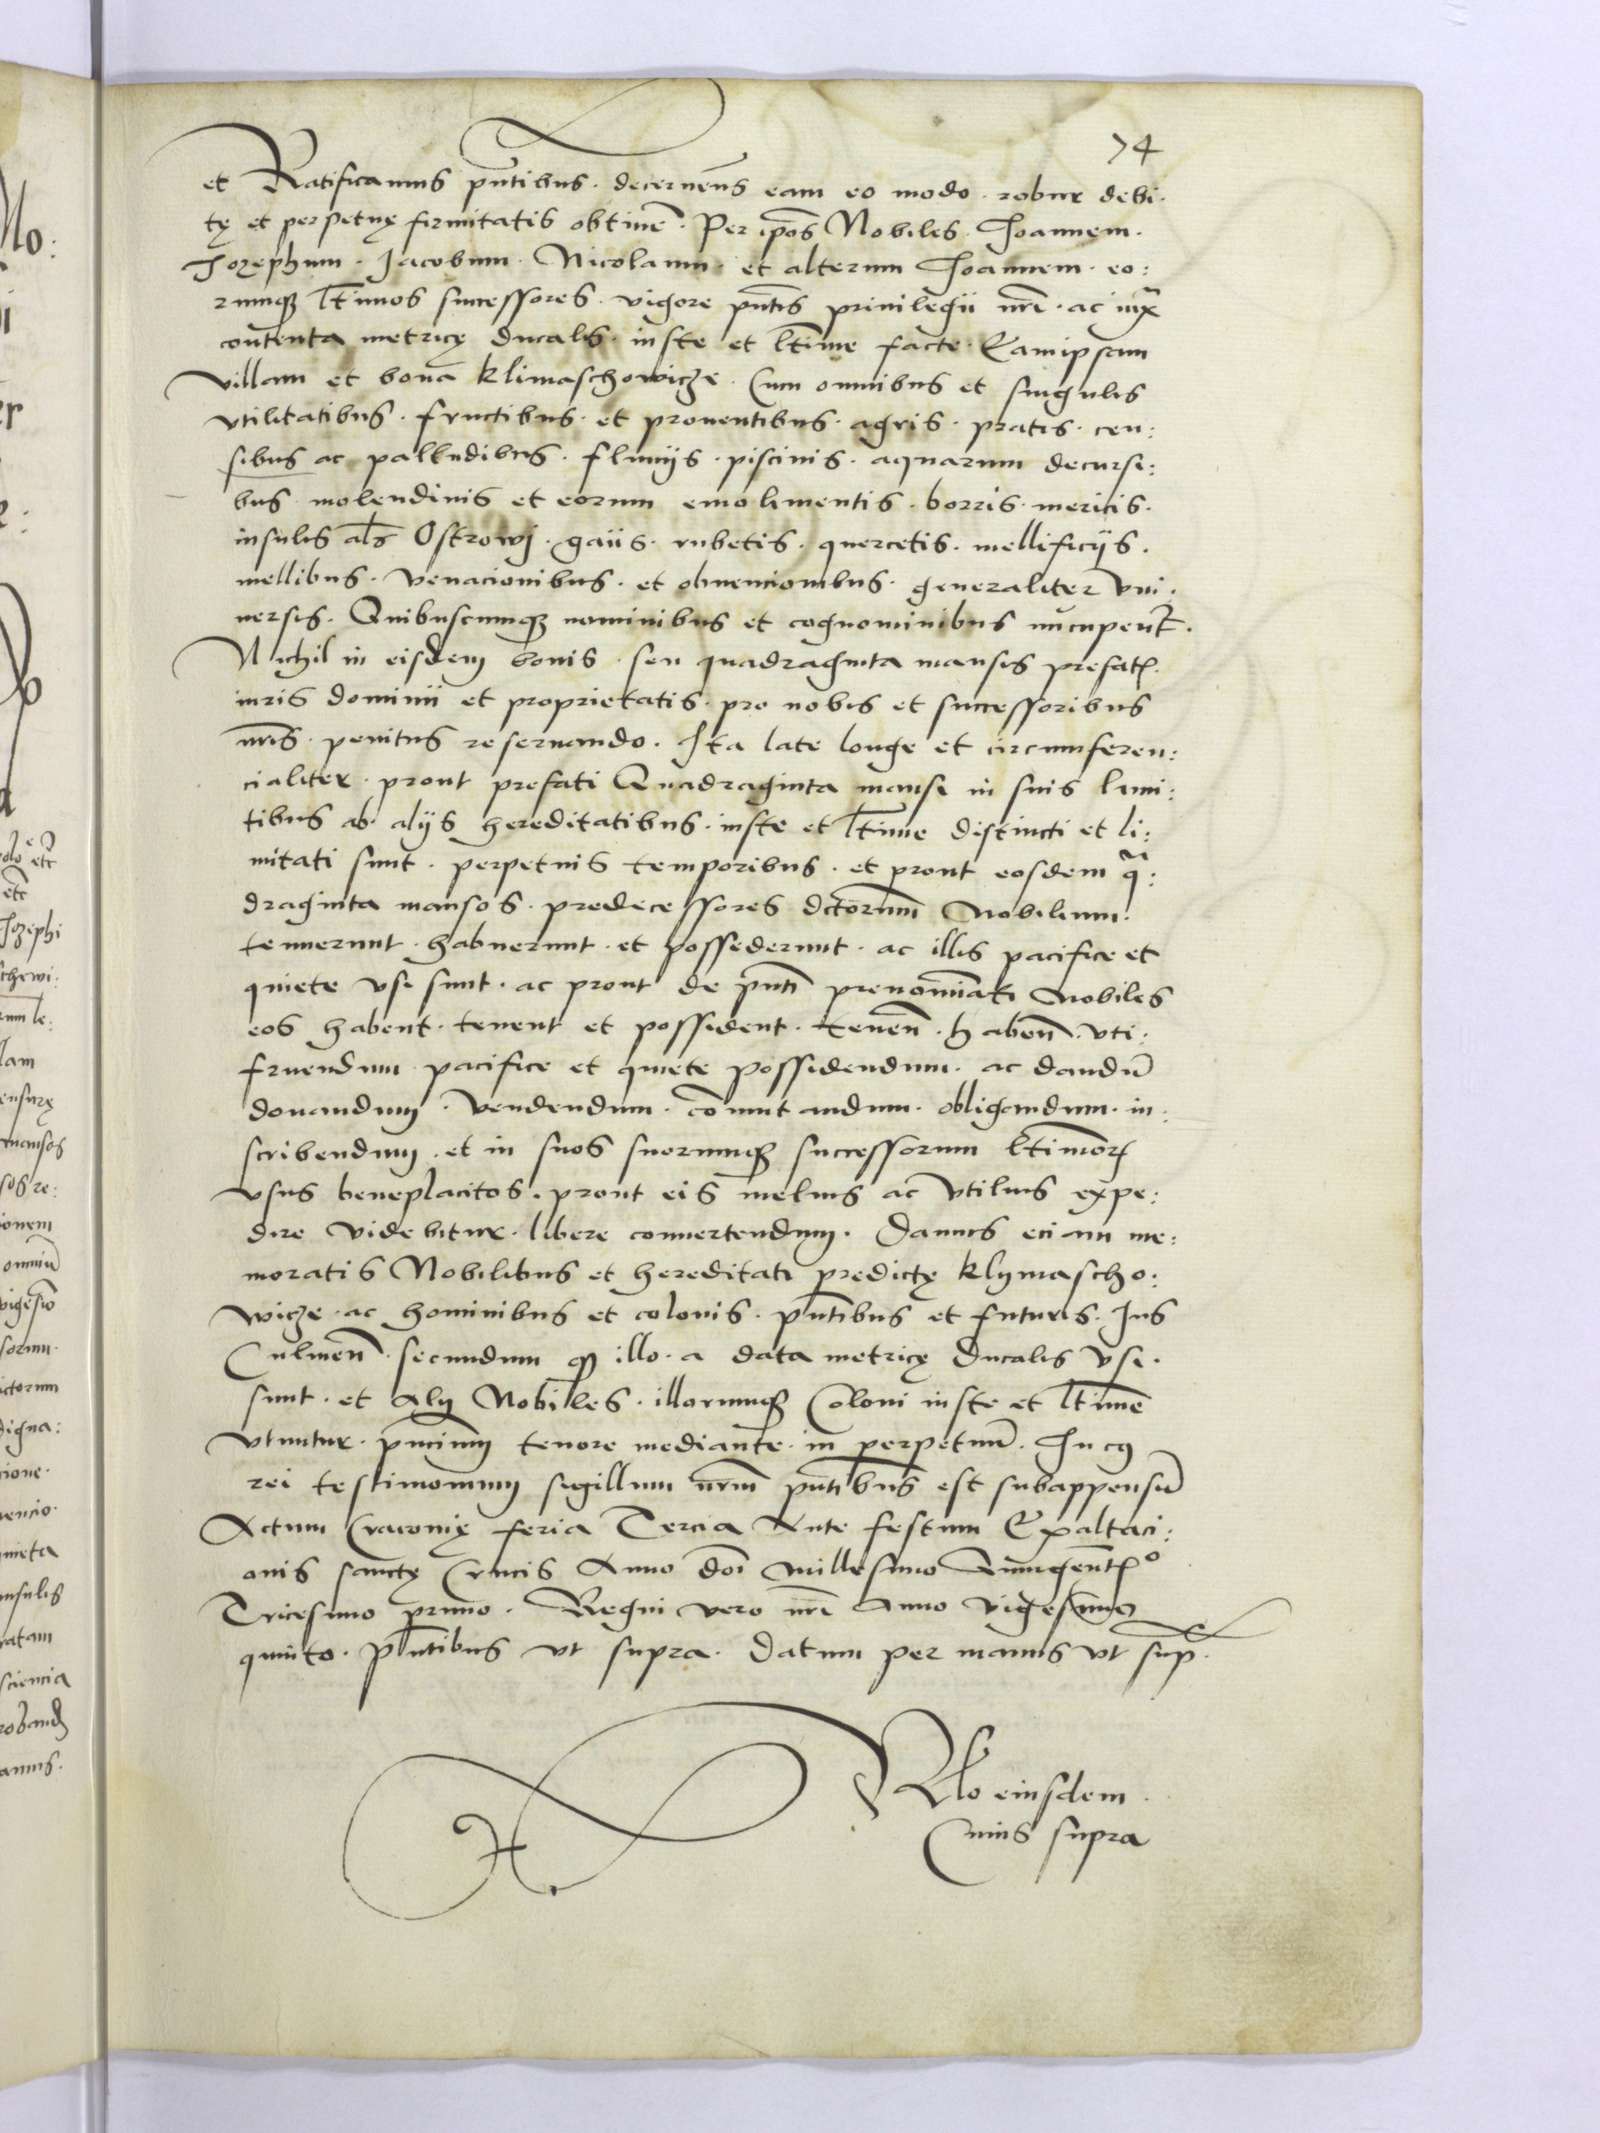 74
et Ratificamus pntibus · decernens eam eo modo · robur debi·
tę et perpetuę firmitatis obtinē · Per ipos Nobiles · Joannem ·
Jozephum · Jacobum · Nicolaum · et alterum Joannem · eo:
rumq ltimos successores · vigore pntis priuilegii nri · ac iux
contenta metricę ducalis · iuste et ltime facte · Eamipsam
villam et bona klimaschowicze · Cum omnibus et singulis
vtilitatibus · fructibus · et prouentibus · agris · pratis · cen:
sibus ac palludibus · fluuiis · piscinis · aquarum decursi:
bus · molendinis et eorum emolimentis · borris · mericis ·
insulis als Ostrowj · gaiis · rubetis · quercetis · mellificiis ·
mellibus · venacionibus · et obuencionibus · generaliter vni·
uersis · Quibuscumq nominibus et cognominibus nucupent ·
Nichil in eisdem bonis · seu quadraginta mansis prefat
iuris dominii et proprietatis · pro nobis et successoribus
nris · penitus reseruando · Ita late longe et circumferen:
cialiter · prout prefati Quadraginta mansi in suis limi:
tibus ab aliis hereditatibus · iuste et ltime distincti et li:
mitati sunt · perpetuis temporibus · et prout eosdem q:
draginta mansos · predecessores dctorum Nobilium ·
tenuerunt · habuerunt · et possederunt · ac illis pacifice et
quiete vsi sunt · ac prout de pnti prenominati Nobiles
eos habent · tenent et possident · tenen · haben · vti:
fruendum pacifice et quiete possidendum · ac dandu
donandum · vendendum · comutandum · obligandum · in·
scribendum · et in suos suorumq successorum ltimor
vsus beneplacitos · prout eis melius ac vtilius expe:
dire videbitur · libere conuertendum · Damus eciam me:
moratis Nobilibus et hereditati predictę klymascho:
wicze · ac hominibus et colonis · pntibus et futuris · Jus
Culmen · secundum q illo · a data metricę ducalis vsi ·
sunt · et alij Nobiles · illorumq Coloni iuste et ltime
vtuntur · pncium tenore mediante · in perpetuu · In cq
rei testimonium sigillum nrm pntibus est subappensu
Actum Cracouię feria Tercia Ante festum Exaltaci:
onis sanctę Crucis Anno doi Millesimo Quingent°
Tricesimo primo · Regni vero nri Anno vigesimo
quinto · Pntibus vt supra · Datum per manus vt sup ·
Rlo eiusdem
Cuius supra